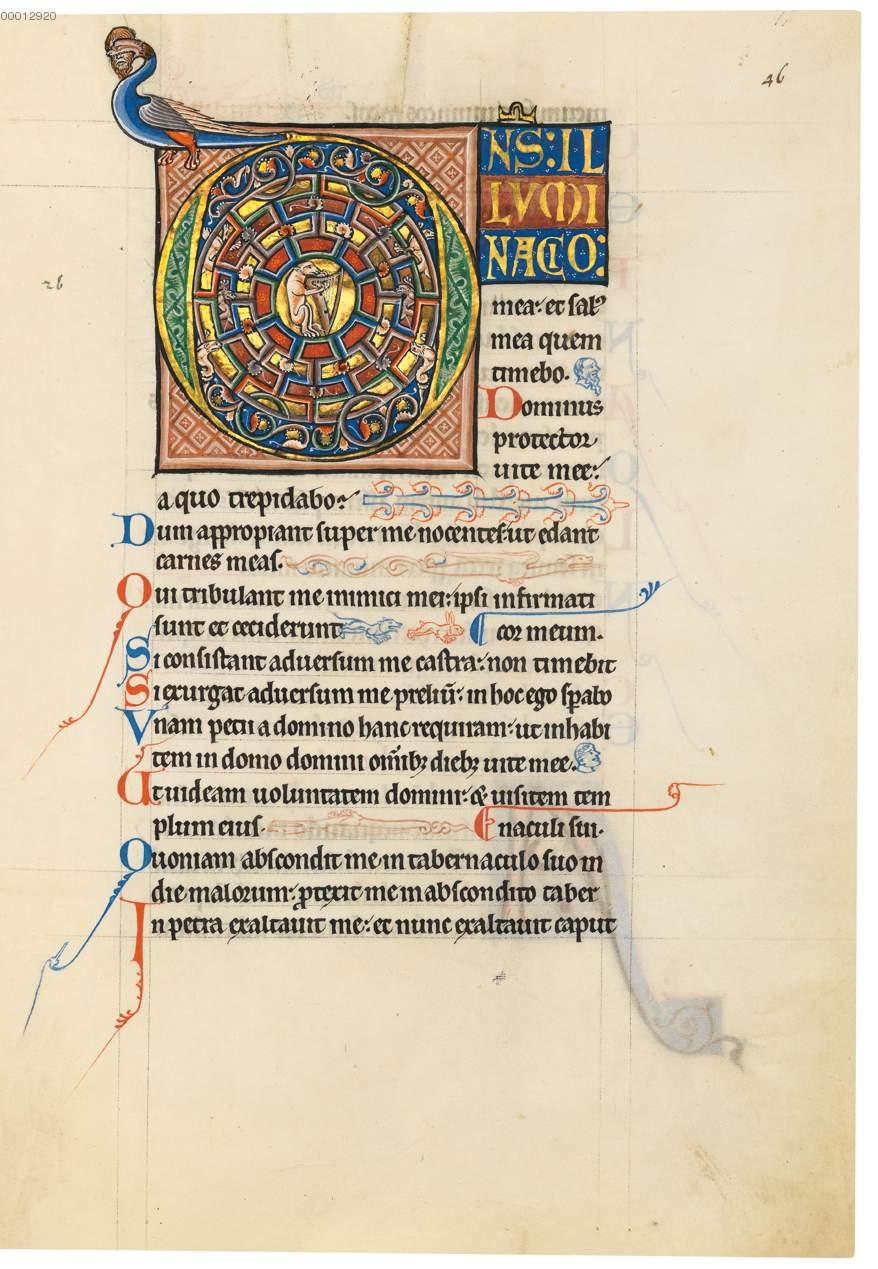 00012920
46
DNS: IL
LUMI
NACIO:
mea: et sal᾽
mea quem
26
timebo.
Dominus
protector
uite mee:
a quo trepidabo:
Dum appropiant super me nocentes: ut edant
carnes meas.
Qui tribulant me inimici mei: ipsi infirmati
sunt et ceciderunt
cor meum.
Si consistant aduersum me castra: non timebit
Si exurgat aduersum me preliū: in hoc ego sp̄abo
Vnam petii a domino hanc requiram: ut inhabi
tem in domo domini om̄ib; dieb; uite mee.
Ut uideam uoluntatem domini: & uisitem tem
plum eius.
naculi sui.
Quoniam abscondit me in tabernaculo suo in
die malorum: ꝓtexit me in abscondito taber
In petra exaltauit me: et nunc exaltauit caput